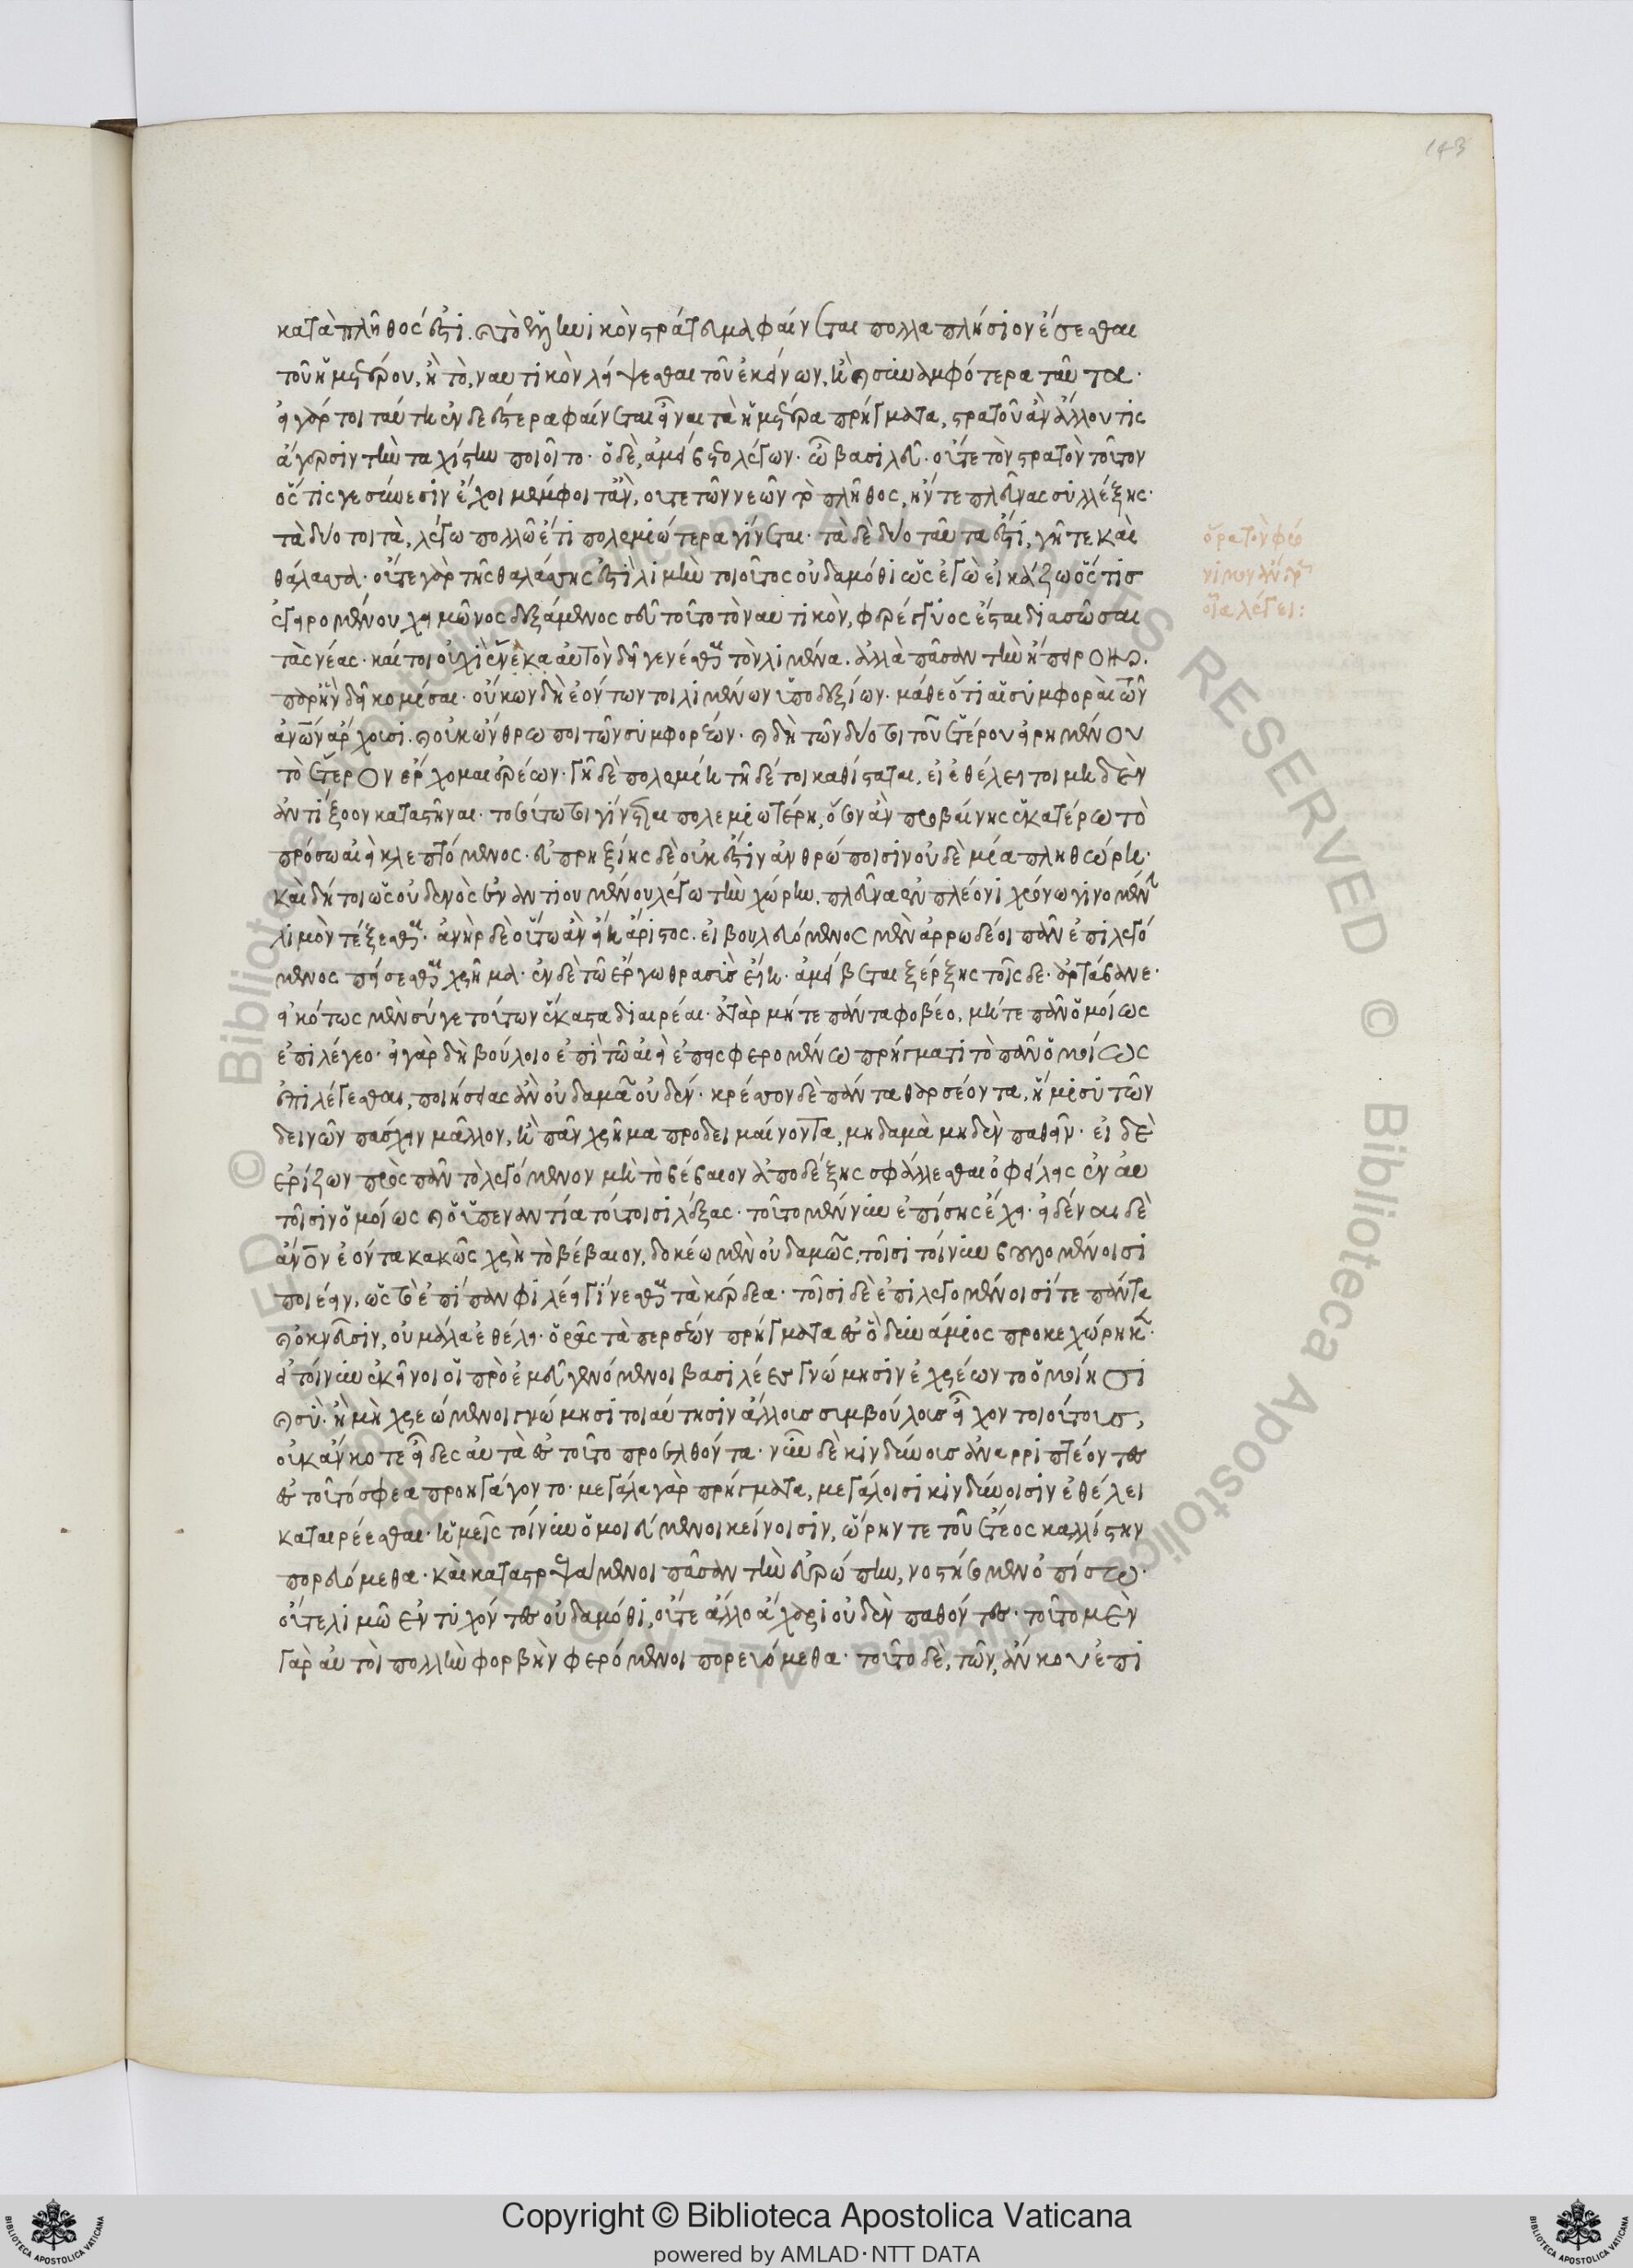 κατὰ πλῆθός ἐστι. καὶ τὸ Ἑλληνικὸν στράτευμα φαίνεται πολλαπλήσιον ἔσεσθαι
τοῦ ἡμετέρου, ἢ τὸ ναυτικὸν λήψεσθαι τοῦ ἐκείνων, ἢ καὶ συναμφότερα ταῦτα·
εἰ γάρ τοι ταύτη ἐνδεέστερα φαίνεται εἶναι τὰ ἡμέτερα πρήγματα, στρατοῦ ἂν ἄλλου τις
ἄγερσιν τὴν ταχίστην ποιοῖτο· ὁ δὲ, ἀμείβετο λέγων· ὦ βασιλεῦ· οὔτε τὸν στρατὸν τοῦτον
ὅστίς γε σύνεσιν ἔχοι μέμφοιτ' ἂν, οὔτε τῶν νεῶν τὸ πλῆθος, ἤν τε πλεῦνας συλλέξης·
τὰ δύο τοι τὰ, λέγω πολλῶ ἔτι πολεμιώτερα γίνεται· τὰ δὲ δύο ταῦτα ἐστί, γῆ τε καὶ
θάλασσα· οὔτε γὰρ τῆς θαλάσσης ἐστὶ λιμὴν τοιοῦτος οὐδαμόθι ὡς ἐγὼ εἰκάζω ὅστις
ἐγειρομένου χειμῶνος δεξάμενος σευ τοῦτο τὸ ναυτικὸν, φερέγγυος ἔσται διασῶσαι
τὰς νέας· καίτοι οὐχὶ ἕνεκα αὐτὸν δεῖ γενέσθαι τὸν λιμένα. ἀλλὰ πᾶσαν τὴν ἤπειρον.
παρ' ἣν δὴ κομίεσαι· οὔκων δὴ ἐόντων τοι λιμένων ὑποδεξίων· μάθε ὅτι αἱ συμφοραὶ τῶν
ἀνων ἄρχουσι. καὶ οὐκ ὥνθρωποι τῶν συμφορέων· καὶ δὴ τῶν δύο τοι τοῦ ἑτέρου εἰρημένου
τὸ ἕτερον ἔρχομαι ἐρέων· γῆ δὲ πολεμίη τῆδέ τοι καθίσταται, εἰ ἐθέλει τοι μηδὲν
ἀντίξοον καταστῆναι· τοσούτω τοι γίνεται πολεμιωτέρη, ὅσω ἂν προβαίνης ἑκατέρω τὸ
πρόσω αἰεὶ κλεπτόμενος· εὐπρηξίης δὲ οὐκ ἔστιν ἀνθρώποισιν οὐδὲ μία πληθώρη·
καὶ δή τοι ὡς οὐδενὸς ἐναντιουμένου λέγω τὴν χώρην. πλεῦνα ἐν πλέονι χρόνω γινομένην
λιμὸν τέξεσθαι· ἀνὴρ δὲ οὕτω ἂν εἴη ἄριστος· εἰ βουλευόμενος μὲν ἀρρωδέοι πᾶν ἐπιλεγό
μενος πείσεσθαι χρῆμα· ἐν δὲ τῶ ἔργω θρασὺς εἴη· ἀμείβεται Ξέρξης τοῖσδε· Ἀρτάβανε·
εἰκότως μὲν σύ γε τούτων ἕκαστα διαιρέαι· ἀτὰρ μήτε πάντα φοβέο, μήτε πᾶν ὁμοίως
ἐπιλέγεο· εἰ γὰρ δὴ βούλοιο ἐπὶ τῶ αἰεὶ ἐπεσφερομένω πρήγματι τὸ πᾶν ὁμοίως
ἐπιλέγεσθαι, ποιήσειας ἂν οὐδαμὰ οὐδέν· κρέσσον δὲ πάντα θαρσέοντα, ἥμισυ τῶν
δεινῶν πάσχειν μᾶλλον, ἢ πᾶν χρῆμα προδειμαίνοντα, μηδαμὰ μηδὲν παθεῖν· εἰ δὲ
ἐρίζων πρὸς πᾶν τὸ λεγόμενον μὴ τὸ βέβαιον ἀποδέξης σφάλλεσθαι ὀφείλεις ἐν αὐ
τοῖσιν ὁμοίως καὶ ὁ ὑπεναντία τούτοισι λέξας· τοῦτο μέν νυν ἐπίσης ἔχει· εἰδέναι δὲ
ἄνον ἐόντα κακῶς χρὴ τὸ βέβαιον, δοκέω μὲν οὐδαμῶς, τοῖσι τοίνυν βουλομένοισι
ποιέειν, ὡς τὸ ἐπίπαν φιλέει γίνεσθαι τὰ κέρδεα· τοῖσι δὲ ἐπιλεγομένοισί τε πάντα
καὶ ὀκνεῦσιν, οὐ μάλα ἐθέλει· ὁρᾶς τὰ Περσέων πρήγματα ἐς ὃ δυνάμιος προκεχώρηκεν·
εἰ τοίνυν ἐκεῖνοι οἱ πρὸ ἐμεῦ γενόμενοι βασιλέες γνώμησιν ἐχρέωντο ὁμοίησι
καὶ σὺ· ἢ μὴ χρεώμενοι γνώμησι τοιαύτησιν ἄλλους συμβούλους εἶχον τοιούτους,
οὐκ ἄν κοτε εἶδες αὐτὰ ἐς τοῦτο προελθόντα· νῦν δὲ κινδύνους ἀναρριπτέοντες
ἐς τοῦτό σφεα προηγάγοντο· μεγάλα γὰρ πρήγματα, μεγάλοισι κινδύνοισιν ἐθέλει
καταιρέεσθαι· ἡμεῖς τοίνυν ὁμοιεύμενοι κείνοισιν, ὥρην τε τοῦ ἔτεος καλλίστην
πορευόμεθα· καὶ καταστρεψάμενοι πᾶσαν τὴν Εὐρώπην, νοστήσομεν ὀπίσω·
οὔτε λιμῶ ἐντυχόντες οὐδαμόθι, οὔτε ἄλλο ἄχαρι οὐδὲν παθόντες· τοῦτο μὲν
γὰρ αὐτοὶ πολλὴν φορβὴν φερόμενοι πορευόμεθα· τοῦτο δὲ, τῶν, ἄν κου ἐπὶ
ὅρα τὸν φο
οἷα λέγει:
143
Copyright © Biblioteca Apostolica Vaticana
powered by AMLAD·NTT DATA